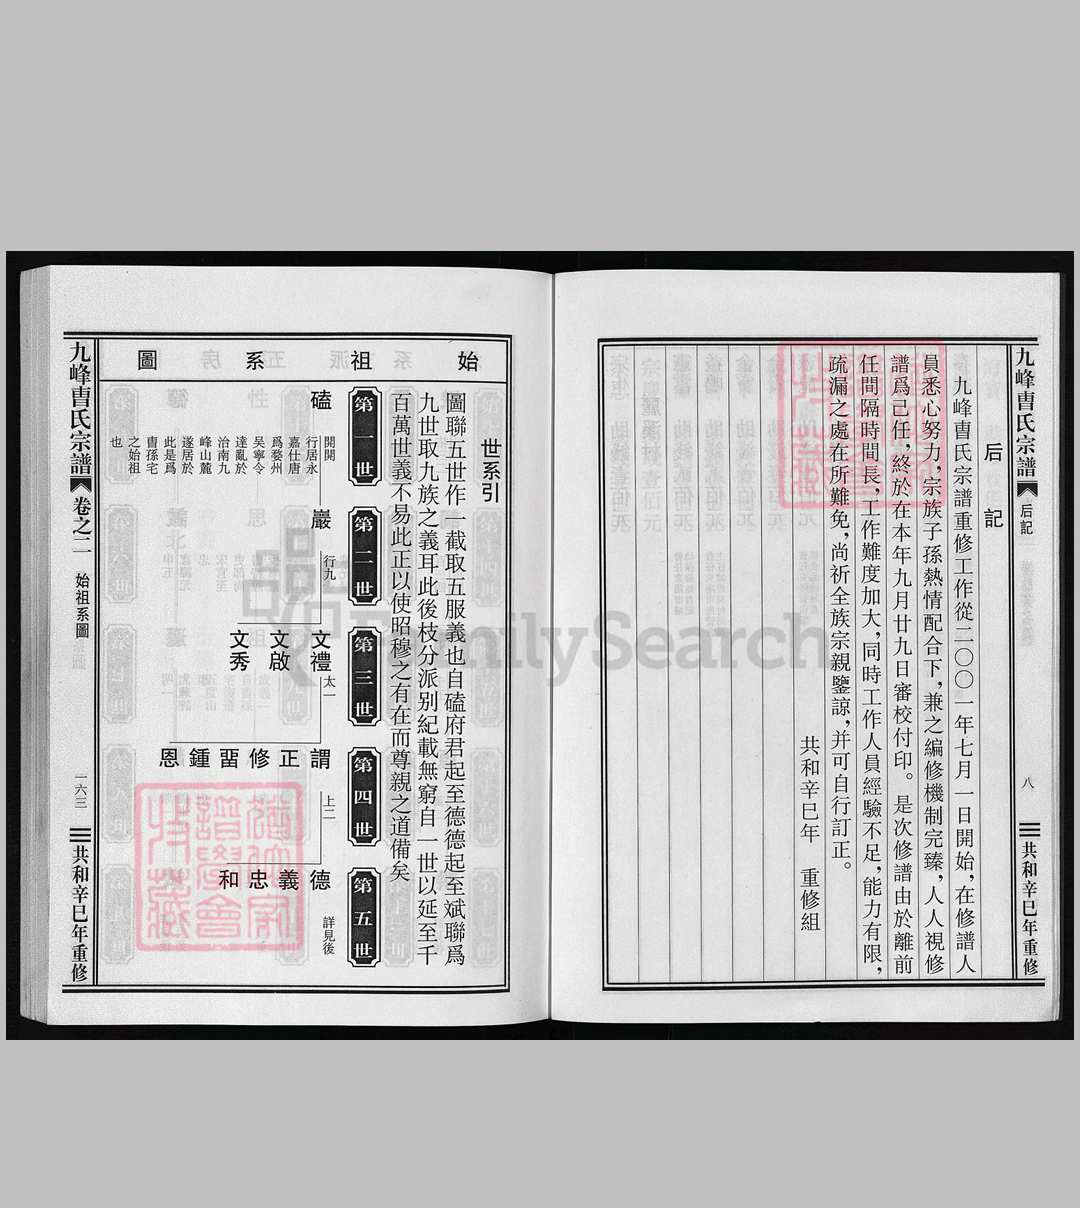 九峰曺氏宗譜
后記
八
共和辛巳年重修
后記
九峰曺氏宗譜重修工作從二〇〇一年七月一日開始，在修譜人
員悉心努力，宗族子孫熱情配合下，兼之編修機制完臻，人人視修
譜爲己任，終於在本年九月廿九日審校付印。是次修譜由於離前
任間隔時間長，工作難度加大，同時工作人員經驗不足，能力有限，
疏漏之處在所難免，尚祈全族宗親鑒諒，并可自行訂正。
共和辛巳年　重修組
始祖系圖
世系引
圖聯五世作一截取五服義也自磕府君起至德德起至斌聯爲
九世取九族之義耳此後枝分派别紀載無窮自一世以延至千
百萬世義不易此正以使昭穆之有在而尊親之道備矣
第一世
第二世
第三世
第四世
第五世
磕
開開
行居永
嘉仕唐
爲婺州
吴寧令
達亂於
治南九
峰山麓
遂居於
此是爲
曺孫宅
之始祖
也
巖
行九
文禮
太一
文啟
文秀
謂正修習鍾恩
上二
德義忠和
詳見後
九峰曺氏宗譜
卷之二
始祖系圖
一六三
共和辛巳年重修
FamilySearch